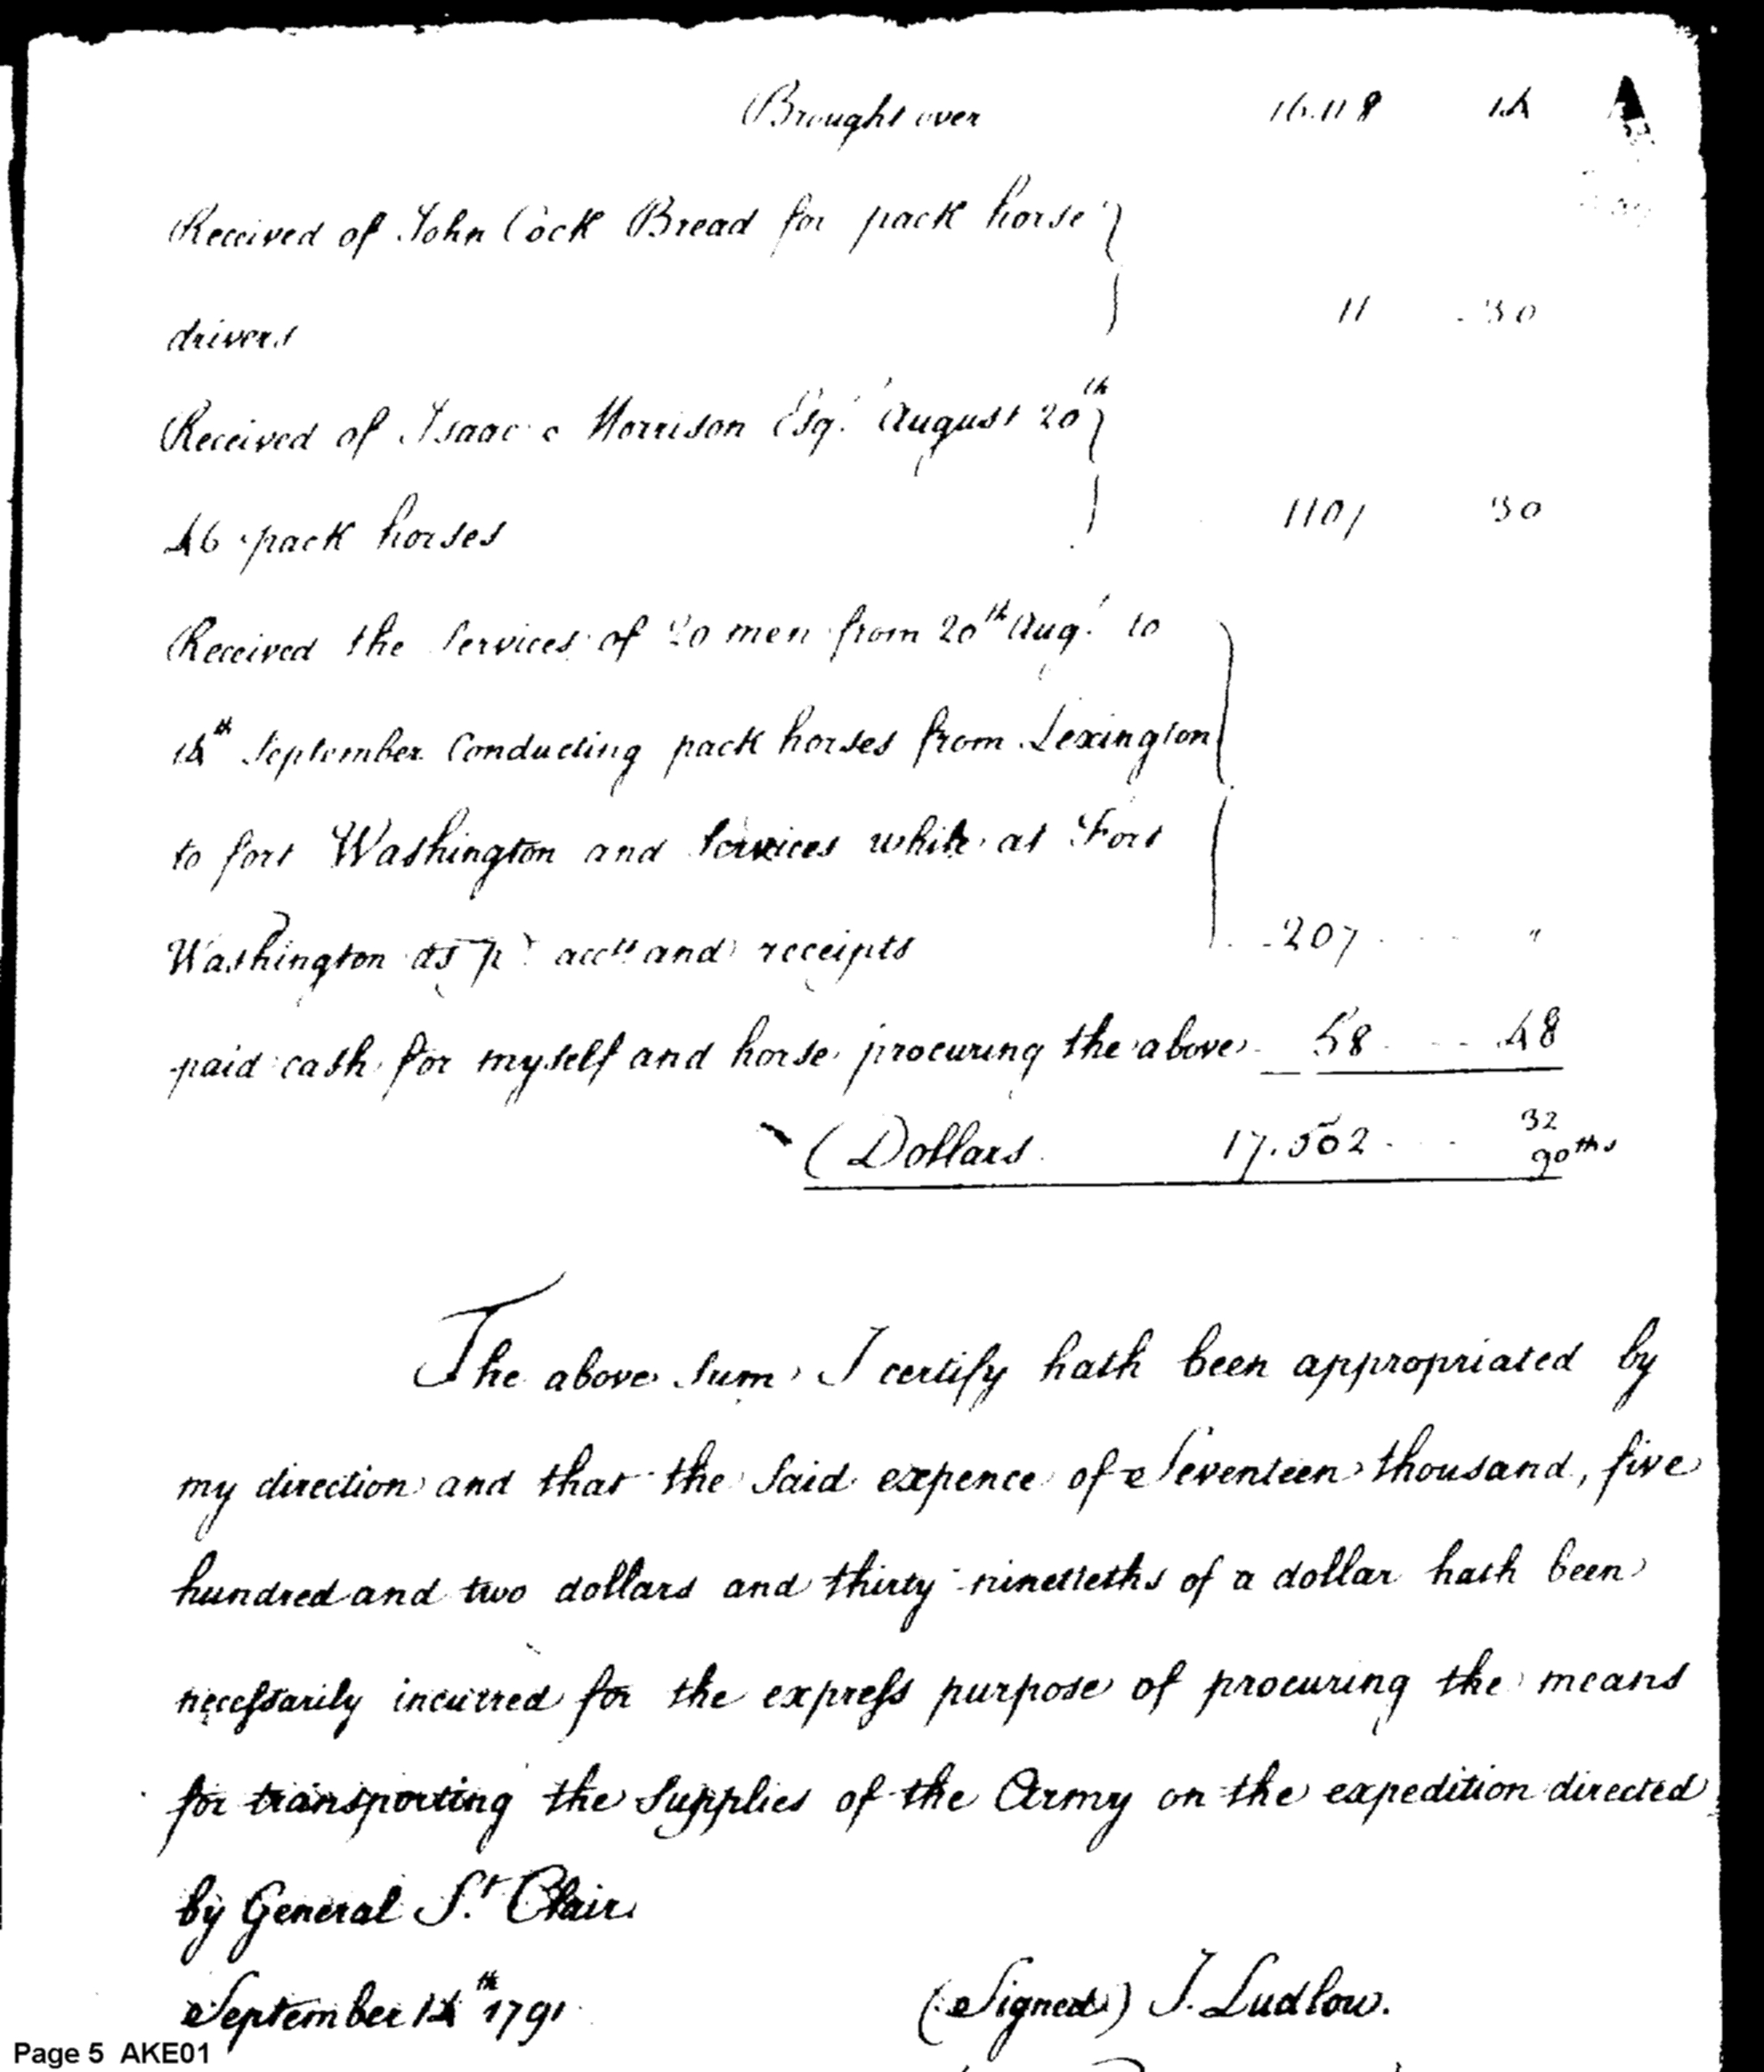 Brought over 16.118 14
Received of John Cock Bread for pack horse
drivers 11 30
Received of Isaac Morrison Esqr. August 20th
46 pack horses 1107 30
Received the Services of 20 men from 20th Augt. to
14th September Conducting pack horses from Lexington
to fort Washington and Services while at Fort
Washington as pr. accts. and receipts 207 "
paid cash for myself and horse procuring the above 58 48
(Dollars 17.502 32
90ths
The above Sum I certify hath been appropriated by
my direction and that the Said expence of Seventeen thousand, five
hundred and two dollars and thirty ninetieths of a dollar hath been
necessarily incurred for the express purpose of procuring the means
for transporting the Supplies of the Army on the expedition directed
by General St. Clair
September 14th 1791
(Signed) I. Ludlow.
Page 5 AKE01